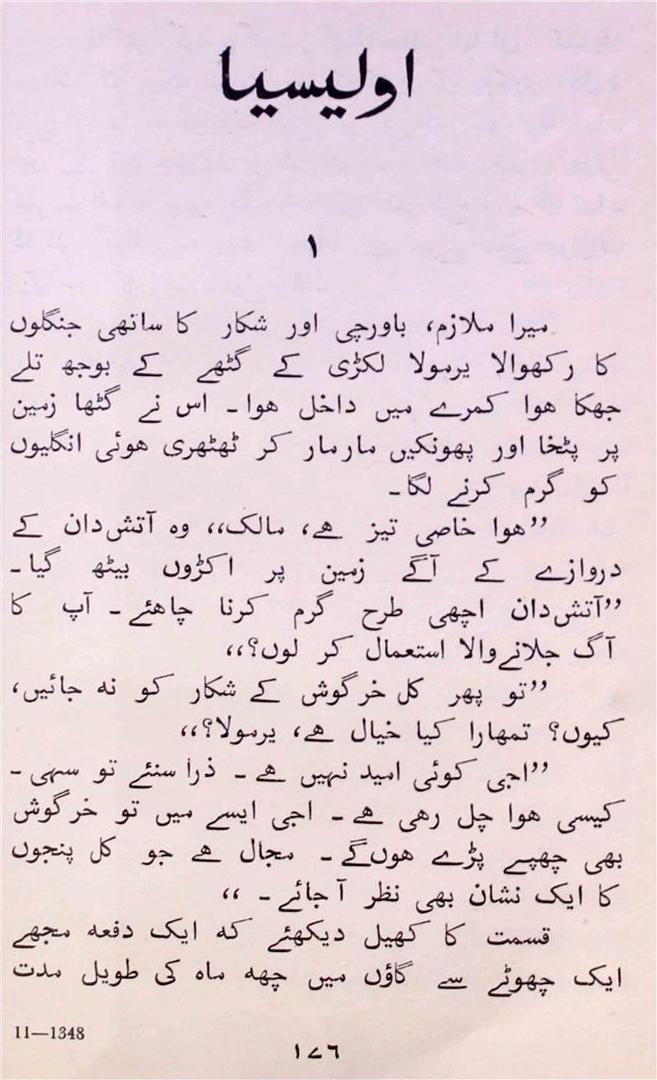 اولیسیا
۱
میرا ملازم، باورچی اور شکار کا ساتھی جنگلوں
کا رکھوالا یرمولا لکڑی کے گٹھے کے بوجھ تلے
جھکا ھوا کمرے میں داخل ھوا۔ اس نے گٹھا زمین
پر پٹخا اور پھونکیں مارمار کر ٹھٹھری ھوئی انگلیوں
کو گرم کرنے لگا۔
”ھوا خاصی تیز ھے، مالک،، وہ آتش‌دان کے
دروازے کے آگے زمین پر اکڑوں بیٹھ گیا۔
”آتش‌دان اچھی طرح گرم کرنا چاھئے۔ آپ کا
آگ جلانے‌والا استعمال کر لوں؟،،
”تو پھر کل خرگوش کے شکار کو نہ جائیں،
کیوں؟ تمھارا کیا خیال ھے، یرمولا؟،،
”اجی کوئی امید نہیں ھے۔ ذرا سنئے تو سہی۔
کیسی ھوا چل رھی ھے۔ اجی ایسے میں تو خرگوش
بھی چھپے پڑے ھوں‌گے۔ مجال ھے جو کل پنجوں
کا ایک نشان بھی نظر آ جائے۔ ،،
قسمت کا کھیل دیکھئے کہ ایک دفعہ مجھے
ایک چھوٹے سے گاؤں میں چھہ ماہ کی طویل مدت
11—1348
۱۷٦